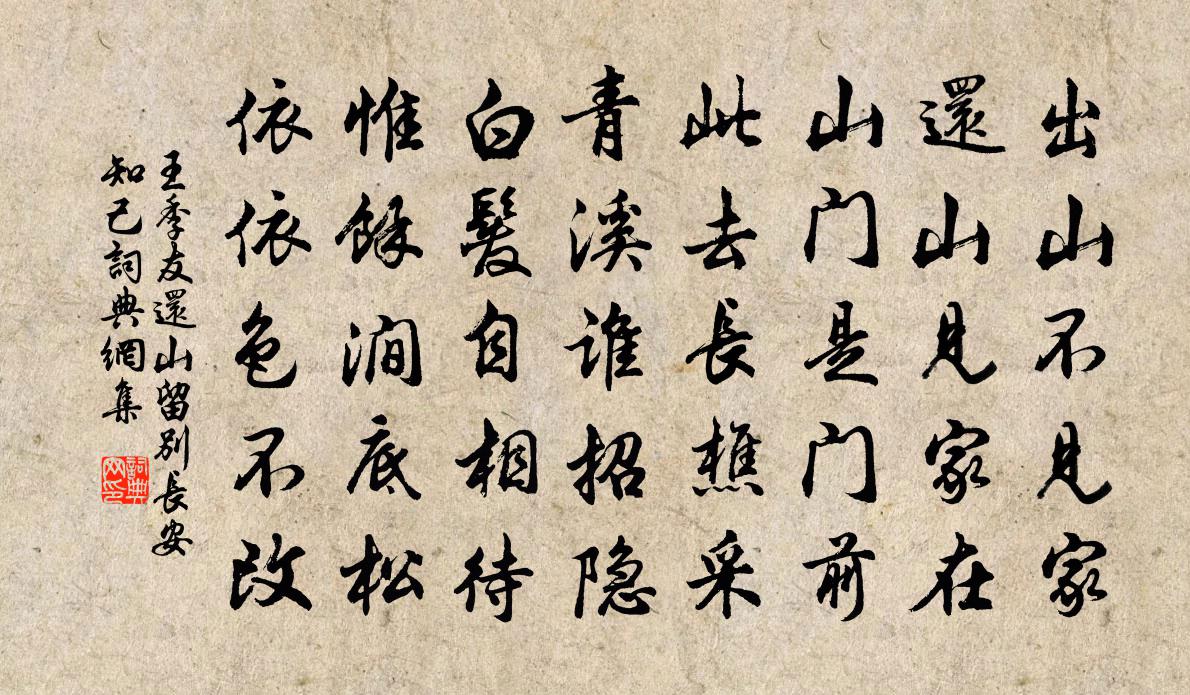 出山不见家
還山見家在
山门是门前
此去長樵采
青溪谁招隐
白髮自相待
惟餘澗底松
依依色不改
王季友還山留別長安
知己詞典網集
詞典
网印